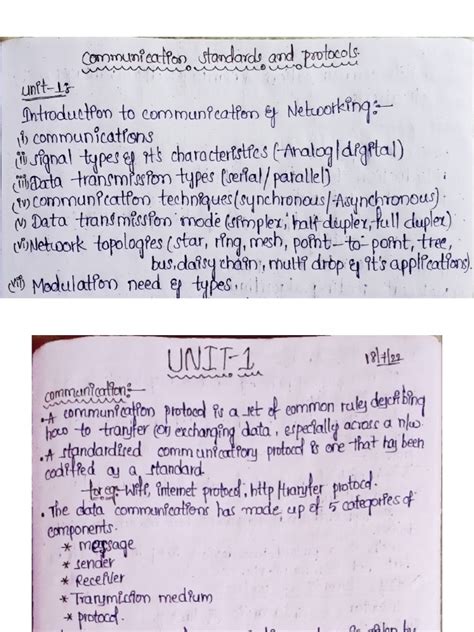 Communication standards and protocols.
Unit-1:-
Introduction to communication & Networking:-
(i) communications
(ii) signal types & it's characteristics (-Analog/digital)
(iii) Data transmission types (serial/parallel)
(iv) communication techniques (synchronous/-Asynchronous).
(v) Data transmission mode (simplex, half duplex, full duplex)
(vi) Network topologies (star, ring, mesh, point-to-point, tree,
bus, daisy chain, multi drop & it's applications).
(vii) Modulation need & types.
UNIT-1
18/7/22
communication:-
• A communication protocol is a set of common rules describing
how to tranfer (or) exchanging data, especially across a n/w.
• A standardized communication protocol is one that has been
codified as a standard.
for eg:- wifi, internet protocol, http/transfer protocol.
• The data communications has made up of 5 categories of
components.
* message
* sender
* Receiver
* Transmission medium
* protocol.